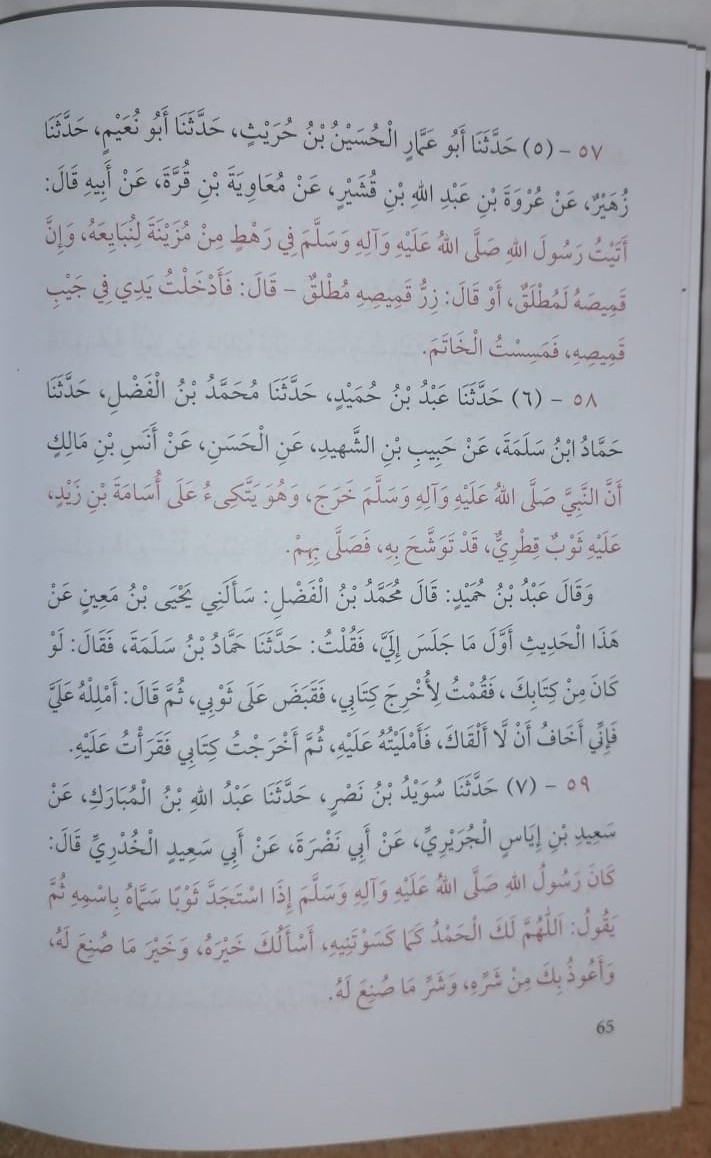 ٥٧ - (٥) حَدَّثَنَا أَبُو عَمَّارٍ الْحُسَيْنُ بْنُ حُرَيْثٍ، حَدَّثَنَا أَبُو نُعَيْمٍ، حَدَّثَنَا
زُهَيْرٌ، عَنْ عُرْوَةَ بْنِ عَبْدِ اللهِ بْنِ قُشَيْرٍ، عَنْ مُعَاوِيَةَ بْنِ قُرَّةَ، عَنْ أَبِيهِ قَالَ:
أَتَيْتُ رَسُولَ اللهِ صَلَّى اللهُ عَلَيْهِ وَآلِهِ وَسَلَّمَ فِي رَهْطٍ مِنْ مُزَيْنَةَ لِنُبَايِعَهُ، وَإِنَّ
قَمِيصَهُ لَمُطْلَقٌ، أَوْ قَالَ: زِرُّ قَمِيصِهِ مُطْلَقٌ - قَالَ: فَأَدْخَلْتُ يَدِي فِي جَيْبِ
قَمِيصِهِ، فَمَسِسْتُ الْخَاتَمَ.
٥٨ - (٦) حَدَّثَنَا عَبْدُ بْنُ حُمَيْدٍ، حَدَّثَنَا مُحَمَّدُ بْنُ الْفَضْلِ، حَدَّثَنَا
حَمَّادُ ابْنُ سَلَمَةَ، عَنْ حَبِيبِ بْنِ الشَّهِيدِ، عَنِ الْحَسَنِ، عَنْ أَنَسِ بْنِ مَالِكٍ
أَنَّ النَّبِيَّ صَلَّى اللهُ عَلَيْهِ وَآلِهِ وَسَلَّمَ خَرَجَ، وَهُوَ يَتَّكِىءُ عَلَى أُسَامَةَ بْنِ زَيْدٍ،
عَلَيْهِ ثَوْبٌ قِطْرِيٌّ، قَدْ تَوَشَّحَ بِهِ، فَصَلَّى بِهِمْ.
وَقَالَ عَبْدُ بْنُ حُمَيْدٍ: قَالَ مُحَمَّدُ بْنُ الْفَضْلِ: سَأَلَنِي يَحْيَى بْنُ مَعِينٍ عَنْ
هَذَا الْحَدِيثِ أَوَّلَ مَا جَلَسَ إِلَيَّ، فَقُلْتُ: حَدَّثَنَا حَمَّادُ بْنُ سَلَمَةَ، فَقَالَ: لَوْ
كَانَ مِنْ كِتَابِكَ، فَقُمْتُ لِأُخْرِجَ كِتَابِي، فَقَبَضَ عَلَى ثَوْبِي، ثُمَّ قَالَ: أَمْلِلْهُ عَلَيَّ
فَإِنِّي أَخَافُ أَنْ لَّا أَلْقَاكَ، فَأَمْلَيْتُهُ عَلَيْهِ، ثُمَّ أَخْرَجْتُ كِتَابِي فَقَرَأْتُ عَلَيْهِ.
٥٩ - (٧) حَدَّثَنَا سُوَيْدُ بْنُ نَصْرٍ، حَدَّثَنَا عَبْدُ اللهِ بْنُ الْمُبَارَكِ، عَنْ
سَعِيدِ بْنِ إِيَاسٍ الْجُرَيْرِيِّ، عَنْ أَبِي نَضْرَةَ، عَنْ أَبِي سَعِيدٍ الْخُدْرِيِّ قَالَ:
كَانَ رَسُولُ اللهِ صَلَّى اللهُ عَلَيْهِ وَآلِهِ وَسَلَّمَ إِذَا اسْتَجَدَّ ثَوْبًا سَمَّاهُ بِاسْمِهِ ثُمَّ
يَقُولُ: اَللّٰهُمَّ لَكَ الْحَمْدُ كَمَا كَسَوْتَنِيهِ، أَسْأَلُكَ خَيْرَهُ، وَخَيْرَ مَا صُنِعَ لَهُ،
وَأَعُوذُ بِكَ مِنْ شَرِّهِ، وَشَرِّ مَا صُنِعَ لَهُ.
65